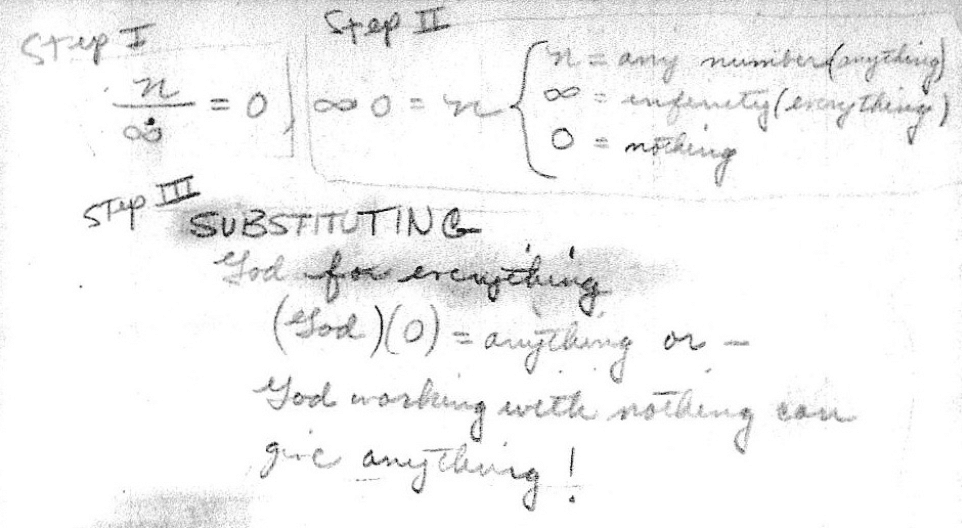 Step I
n/∞ = 0
Step II
∞ 0 = n { n = any number (anything)
∞ = infenety (everything)
0 = nothing
Step III
SUBSTITUTING
God for everything
(God)(0) = anything or –
God working with nothing can
give anything!